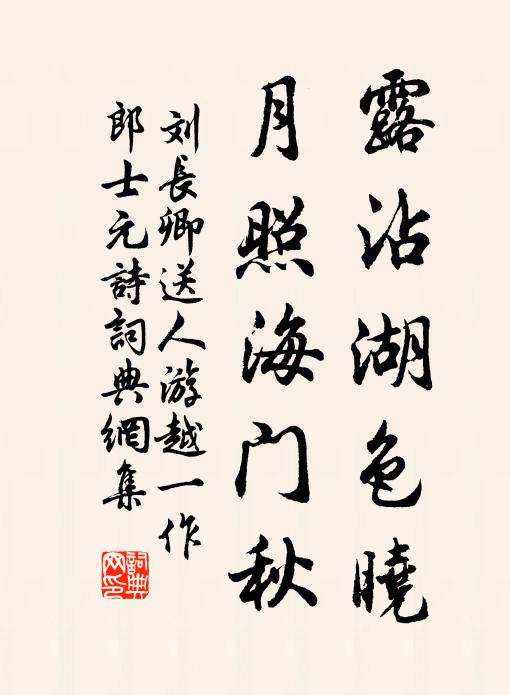 露沾湖色曉
月照海门秋
刘長卿送人游越一作
郎士元詩詞典網集
詞典網印